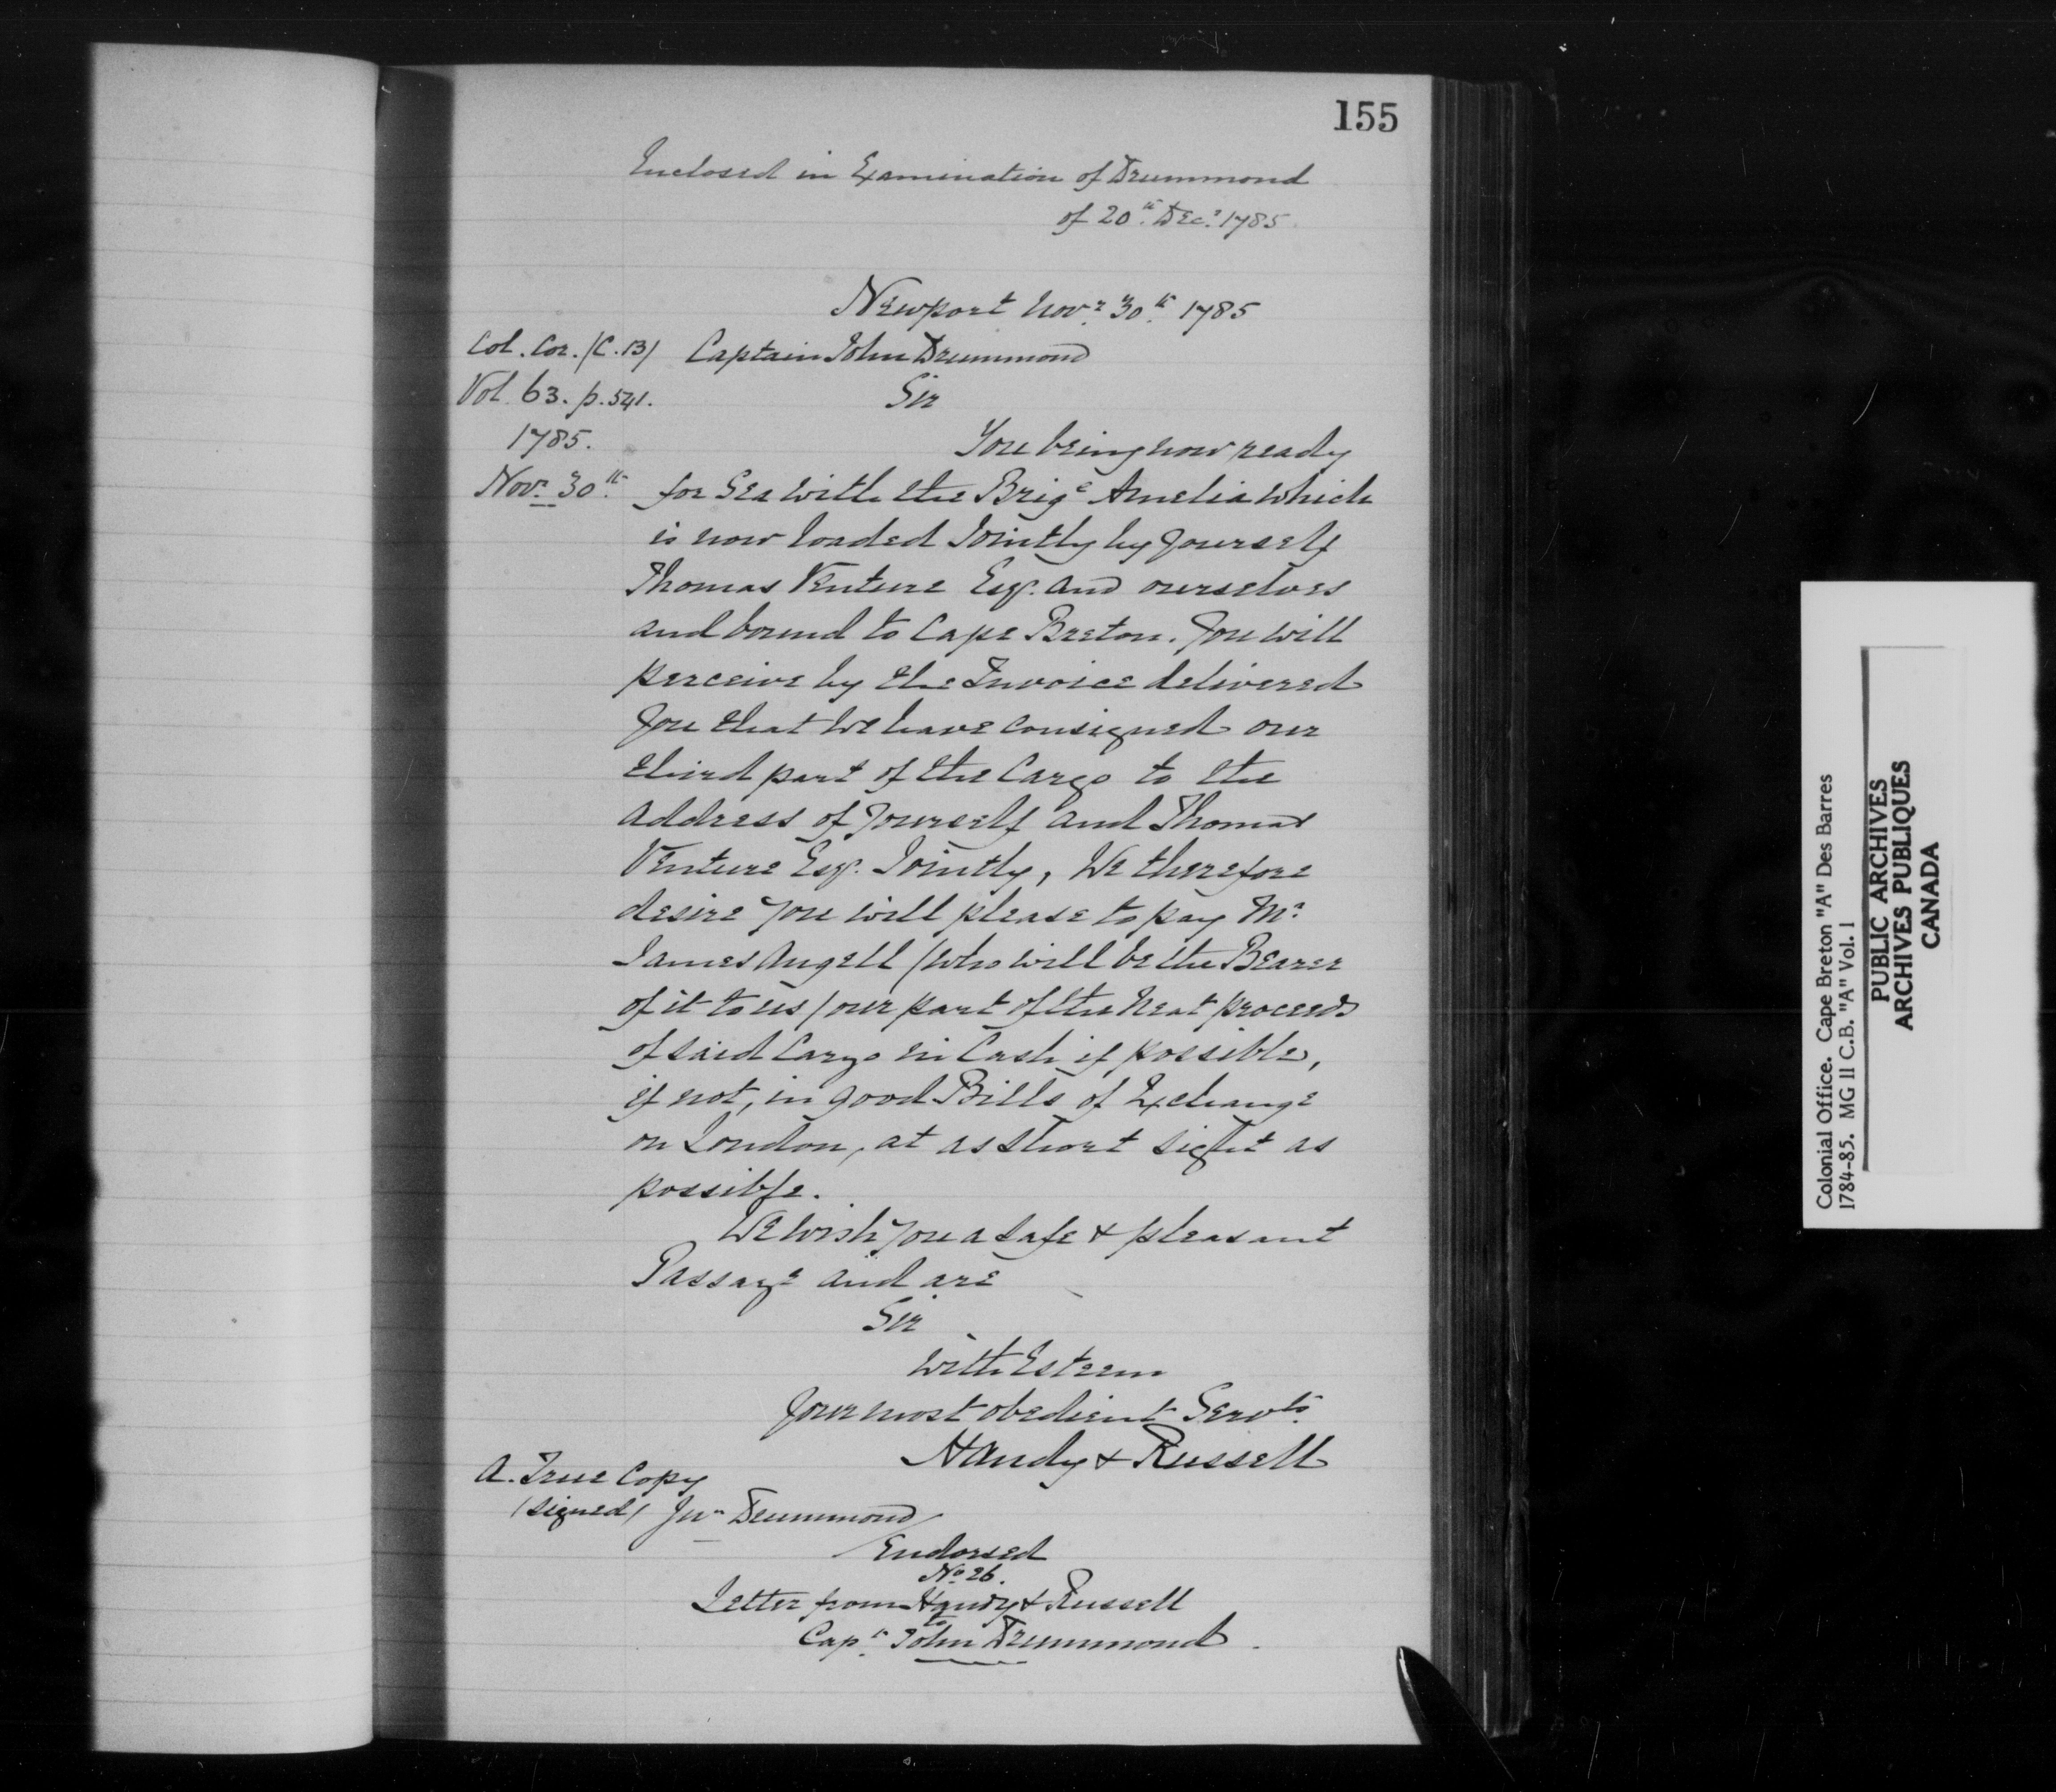 155
Enclosed in Examination of Drummond
of 20th. Decr. 1785.
Newport Novr. 30th. 1785
Col. Cor. /C.B/
Vol. 63. p. 541.
1785.
Novr. 30th.
Captain John Drummond
Sir
You being now ready
for Sea with the Brige Amelia which
is now loaded Jointly by yourself
Thomas Venture Esqr. and ourselves
and bound to Cape Breton. you will
perceive by the Invoice delivered
you that we have consigned our
third part of the Cargo to the
address of yourself and Thomas
Venture Esqr. Jointly, We therefore
desire you will please to pay Mr.
James Angell /who will be the Bearer
of it to us/ our part of the neat proceeds
of said Cargo in Cash if possible,
if not, in good Bills of Exchange
on London, at as short sight as
possible.
We wish you a safe & pleasant
Passage and are
Sir
With Esteem
your most obedient Servts.
Handy & Russell
A. True Copy
/signed/ Jno Drummond
Endorsed
No. 26.
Letter from Handy & Russell
to
Capt. John Drummond.
Colonial Office. Cape Breton "A" Des Barres
1784-85. MG 11 C.B. "A" Vol. 1
PUBLIC ARCHIVES
ARCHIVES PUBLIQUES
CANADA